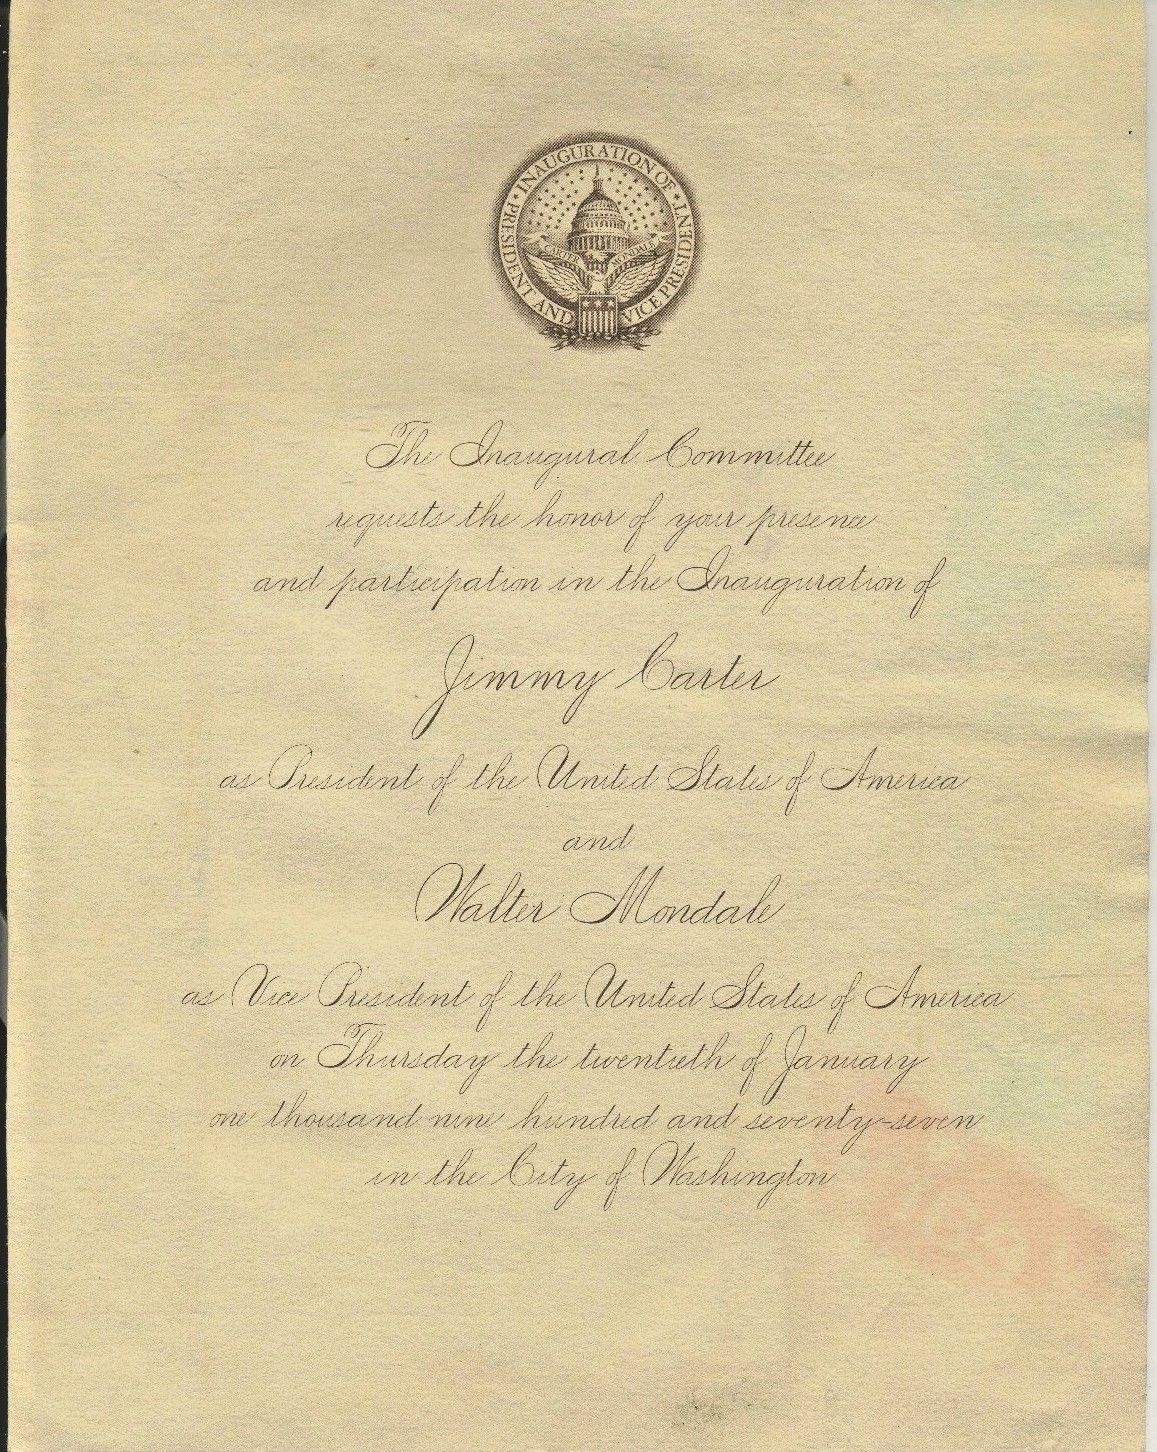 INAUGURATION OF
PRESIDENT AND VICE PRESIDENT
CARTER MONDALE
The Inaugural Committee
requests the honor of your presence
and participation in the Inauguration of
Jimmy Carter
as President of the United States of America
and
Walter Mondale
as Vice President of the United States of America
on Thursday the twentieth of January
one thousand nine hundred and seventy-seven
in the City of Washington